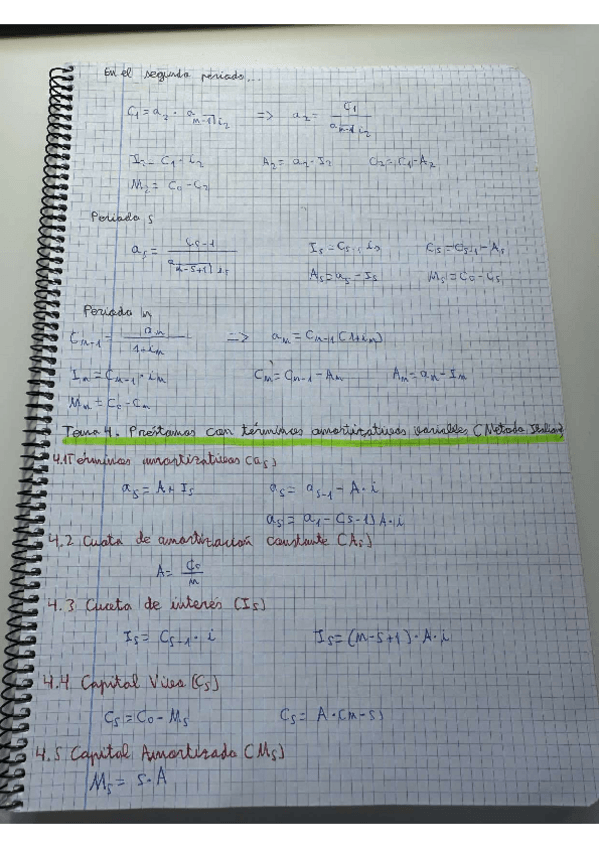 En el segundo periodo...
C₁ = a₂ · a n-1┐i₂ => a₂ = C₁ / a n-1┐i₂
I₂ = C₁ · i₂ A₂ = a₂ - I₂ C₂ = C₁ - A₂
M₂ = C₀ - C₂
Periodo s
aₛ = Cₛ₋₁ / a n-s+1┐iₛ Iₛ = Cₛ₋₁ · iₛ Cₛ = Cₛ₋₁ - Aₛ
Aₛ = aₛ - Iₛ Mₛ = C₀ - Cₛ
Periodo n
Cₙ₋₁ = aₙ / 1+iₙ => aₙ = Cₙ₋₁ (1+iₙ)
Iₙ = Cₙ₋₁ · iₙ Cₙ = Cₙ₋₁ - Aₙ Aₙ = aₙ - Iₙ
Mₙ = C₀ - Cₙ
Tema 4. Préstamos con términos amortizativos variables (Metodo Italiano)
4.1 Términos amortizativos (aₛ)
aₛ = A + Iₛ aₛ = aₛ₋₁ - A · i
aₛ = a₁ - (s-1) A · i
4.2 Cuota de amortización constante (Aₛ)
A = C₀ / n
4.3 Cuota de interés (Iₛ)
Iₛ = Cₛ₋₁ · i Iₛ = (n-s+1) · A · i
4.4 Capital Vivo (Cₛ)
Cₛ = C₀ - Mₛ Cₛ = A · (n-s)
4.5 Capital Amortizado (Mₛ)
Mₛ = s · A